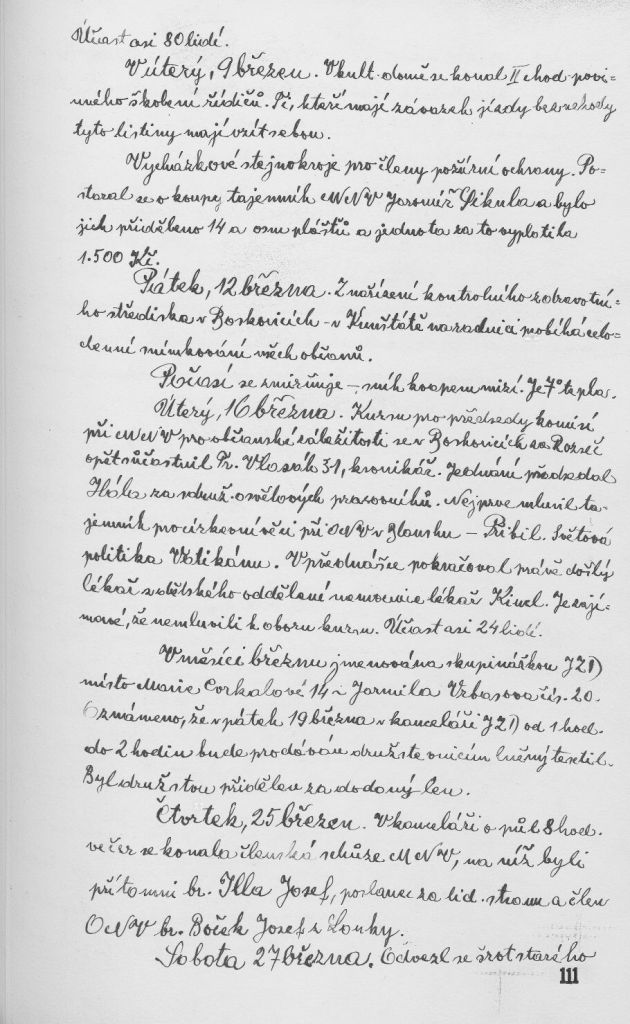 Účast asi 80 lidí.
V úterý, 9 březen. V kult. domě se konal II chod povi=
nného školení řidičů. Ti, kteří mají závazek jízdy bez nehody
tyto listiny mají vzít sebou.
Vycházkové stejnokroje pro členy požární ochrany. Po=
staral se o koupy tajemník MNV Jaromír Sikula a bylo
jich přiděleno 14 a osm plášťů a jednota za to vyplatila
1.500 Kč.
Pátek, 12 března. Z nařízení kontrolního zdravotní=
ho střediska v Boskovicích - v Kunštátě na radnici probíhá celo-
denní snímkování všech občanů.
Počasí se zmirňuje - sníh kvapem mizí. Je 7° tepla.
Úterý, 16 března. Kurzu pro předsedy komisí
při MNV pro občanské záležitosti se v Boskovicích za Rozseč
opět súčastnil Fr. Vlasák 31, kronikář. Jednání předsedal
Hála za sdruž. osvětových pracovníků. Nejprve mluvil ta-
jemník pro církevní věci při ONV v Blansku - Přibil. Světová
politika Vatikánu. V přednášce pokračoval právě došlý
lékař z dětského oddělení nemocnice lékař Kincl. Je zají-
mavé, že nemluvili k oboru kurzu. Účast asi 24 lidí.
V měsíci březnu jmenována skupinářkou JZD
místo Marie Corkalové 14 - Jarmila Vrbasova čís. 20.
Oznámeno, že v pátek 19 března v kanceláři JZD od 1 hod.
do 2 hodin bude prodáván družstevnicím lněný textil.
Byl družstvu přidělen za dodaný len.
Čtvrtek, 25 březen. V kanceláři o půl 8 hod.
večer se konala členská schůze MNV, na níž byli
přítomni br. Illa Josef, poslanec za lid. stranu a člen
ONV br. Boček Josef z Louky.
Sobota 27 března. Odvezl se šrot starého
111